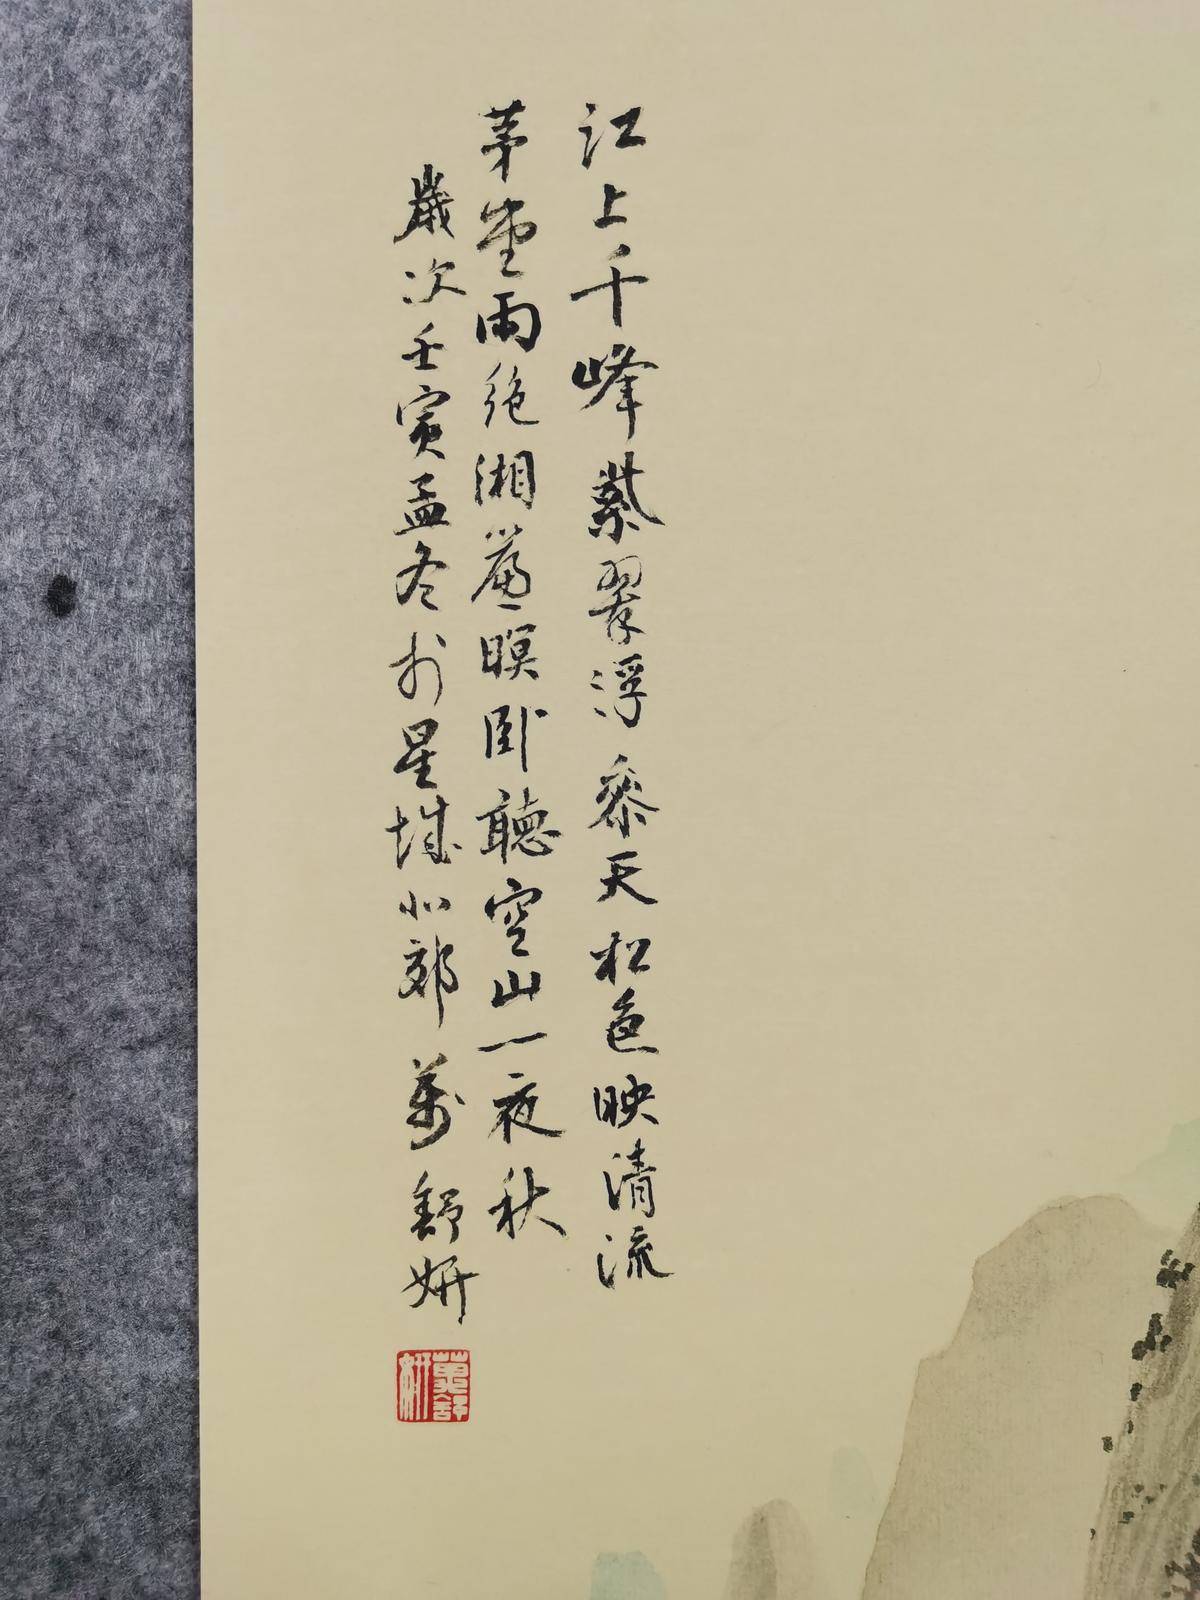 江上千峰紫翠浮参天松色映清流
茅堂雨绝湘簾暝卧聽空山一夜秋
歲次壬寅孟冬於星城北郊萬舒妍
萬舒妍